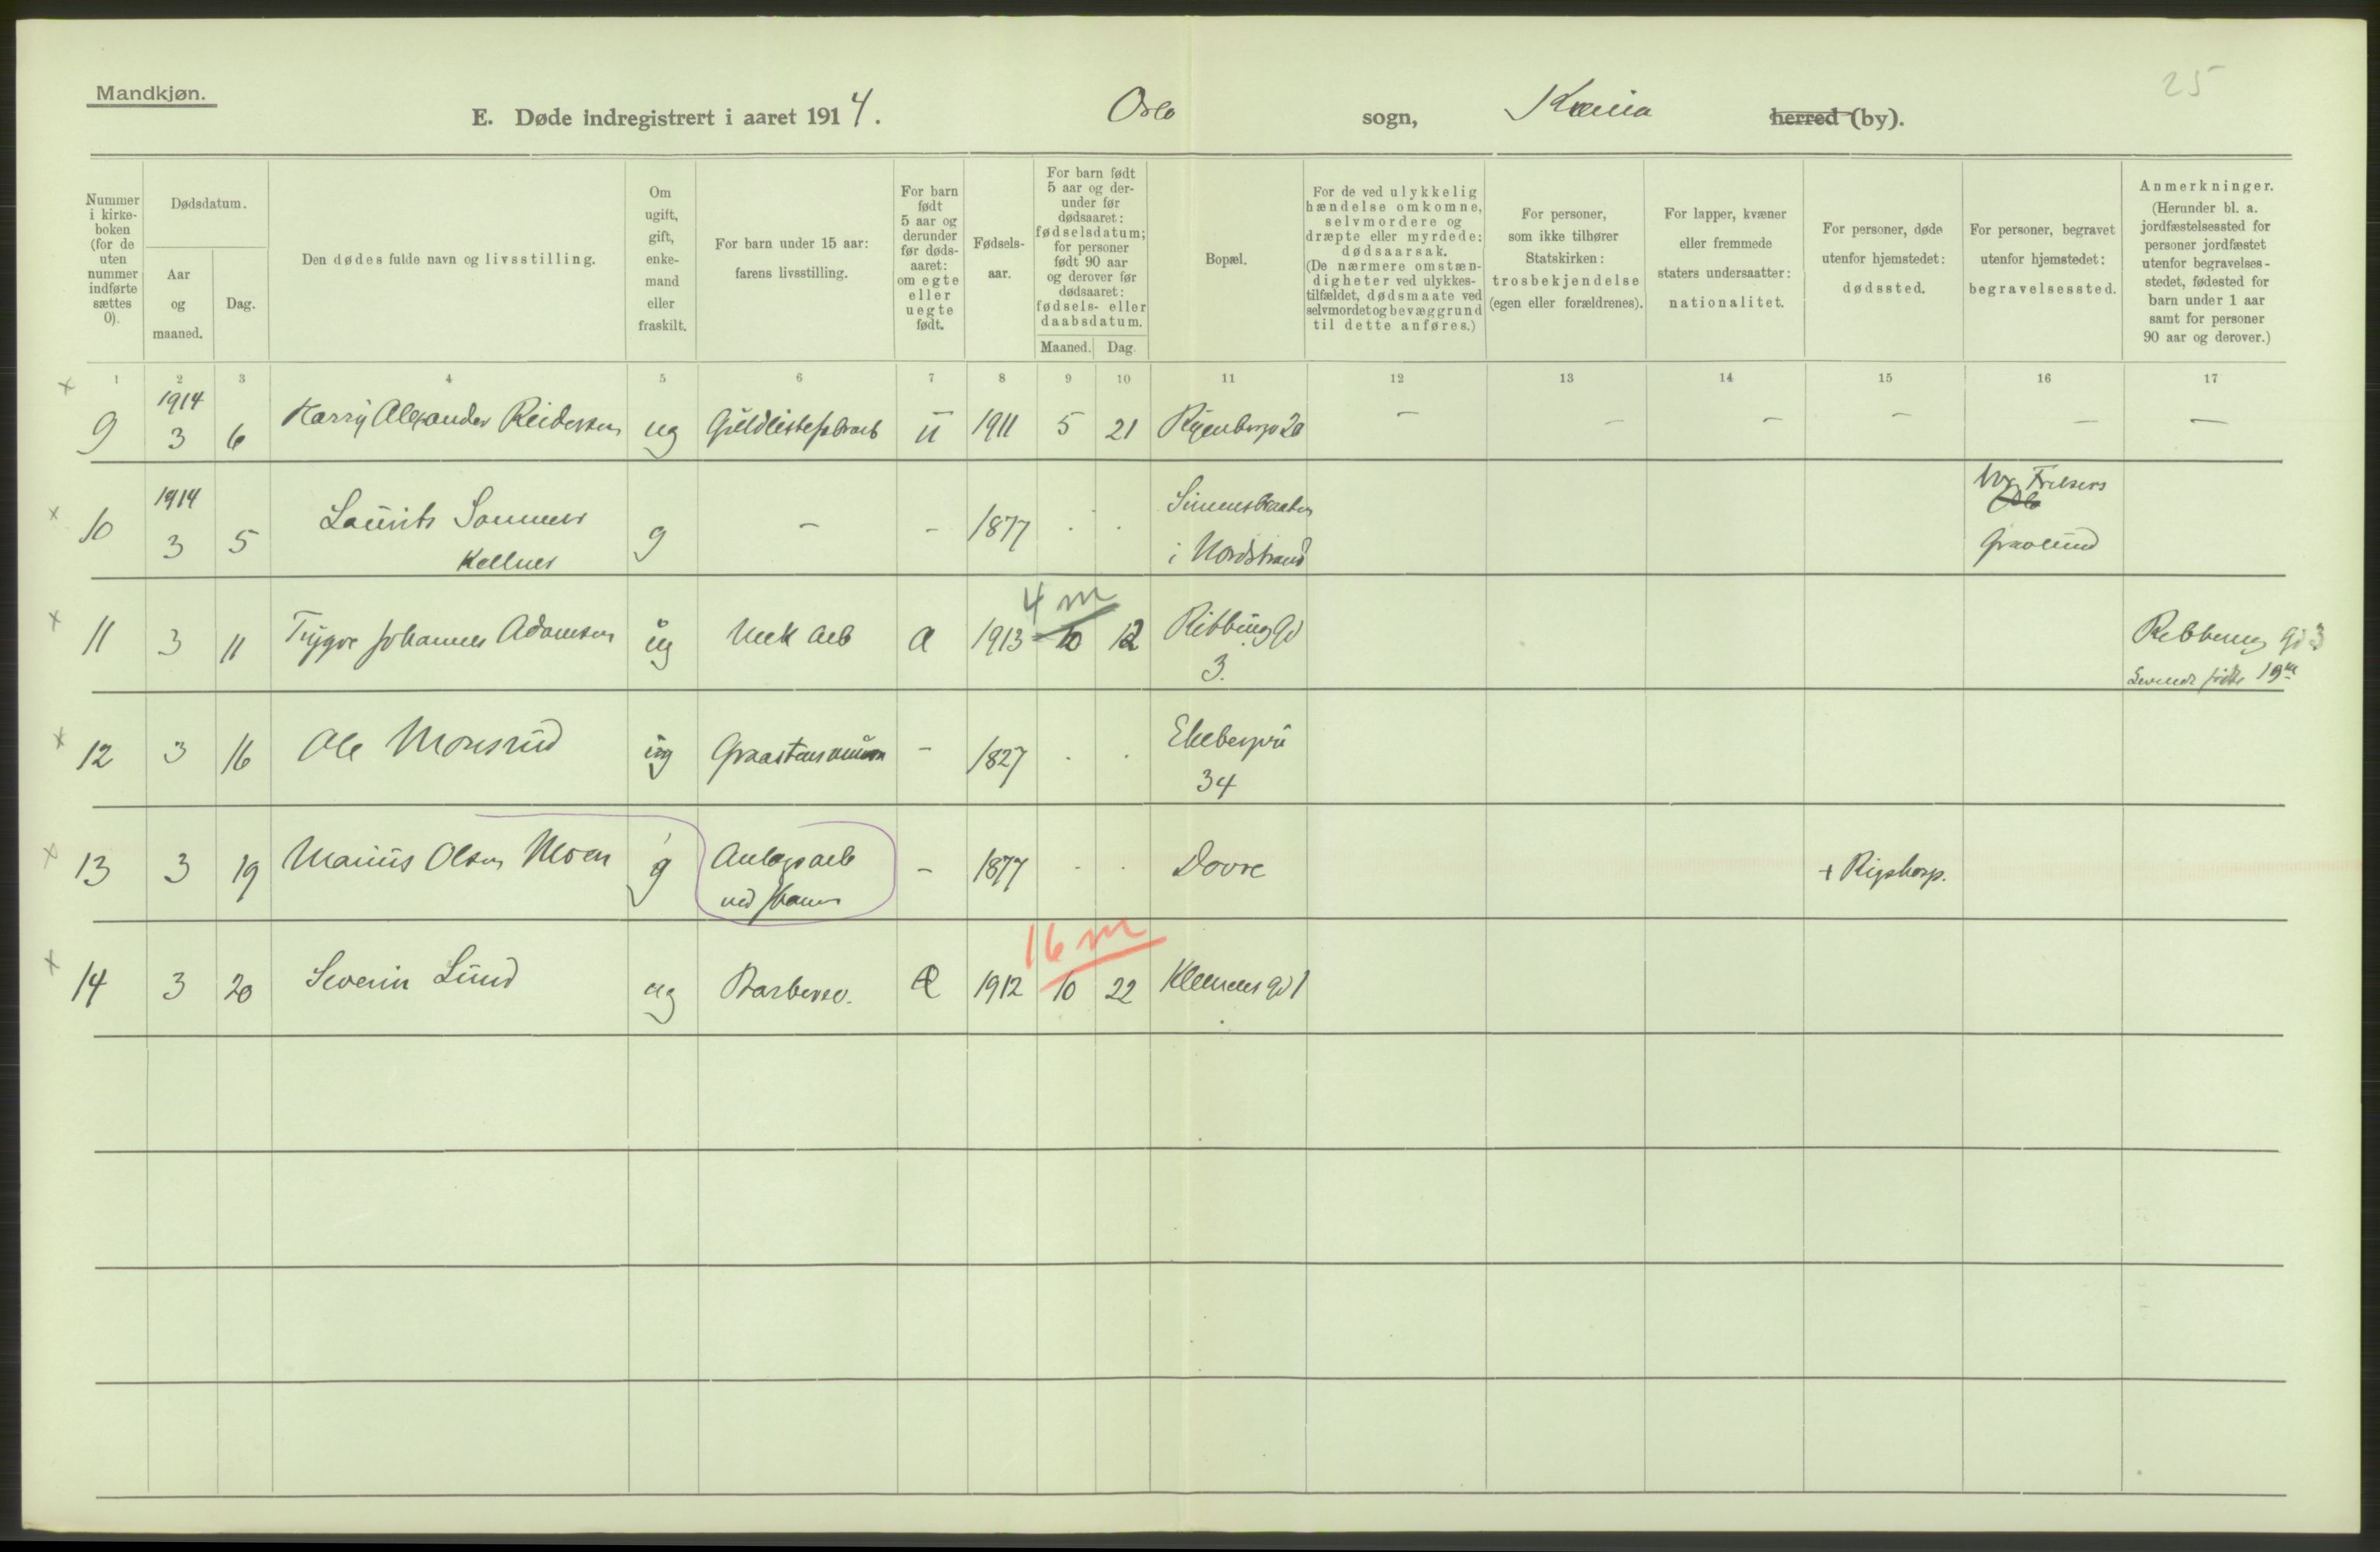 Mandkjøn.
25
E. Døde indregistrert i aaret 1914. Oslo sogn, Krania herred (by).
Nummer i kirke-boken (for de uten nummer indførte sættes 0).
Dødsdatum.
Aar og maaned.
Dag.
Den dødes fulde navn og livsstilling.
Om ugift, gift, enke-mand eller fraskilt.
For barn under 15 aar: farens livsstilling.
For barn født 5 aar og derunder før døds-aaret: om egte eller uegte født.
Fødsels-aar.
For barn født 5 aar og der-under før dødsaaret: fødselsdatum; for personer født 90 aar og derover før dødsaaret: fødsels- eller daabsdatum.
Maaned. Dag.
Bopæl.
For de ved ulykkelig hændelse omkomne, selvmordere og dræpte eller myrdede: dødsaarsak. (De nærmere omstæn-digheter ved ulykkes-tilfældet, dødsmaate ved selvmordet og bevæggrund til dette anføres.)
For personer, som ikke tilhører Statskirken: trosbekjendelse (egen eller forældrenes).
For lapper, kvæner eller fremmede staters undersaatter: nationalitet.
For personer, døde utenfor hjemstedet: dødssted.
For personer, begravet utenfor hjemstedet: begravelsessted.
Anmerkninger. (Herunder bl. a. jordfæstelsessted for personer jordfæstet utenfor begravelses-stedet, fødested for barn under 1 aar samt for personer 90 aar og derover.)
1 2 3 4 5 6 7 8 9 10 11 12 13 14 15 16 17
x 9 1914 3 6 Harry Alexander Reidersen ug Guldlistefabrarb u 1911 5 21 Ryenbergv 20 — — — — — —
x 10 1914 3 5 Laurits Sommer Kellner g — — 1877 . . Simensbraaten i Nordstrand Vor Frelsers Oslo Gravlund
4 m
x 11 3 11 Trygve Johannes Adamsen ug Mek arb a 1913 10 12 Ribbing Gd 3. Ribbing Gd 3
19
x 12 3 16 Ole Monsrud ug Graastensmurer — 1827 . . Ekebergvei 34
x 13 3 19 Marius Olsen Moen g Anlægsarb ved — 1877 . . Dovre + Rigshosp.
16 m
x 14 3 20 Severin Lund ug Barbersv. 1912 10 22 Klemens Gd 1